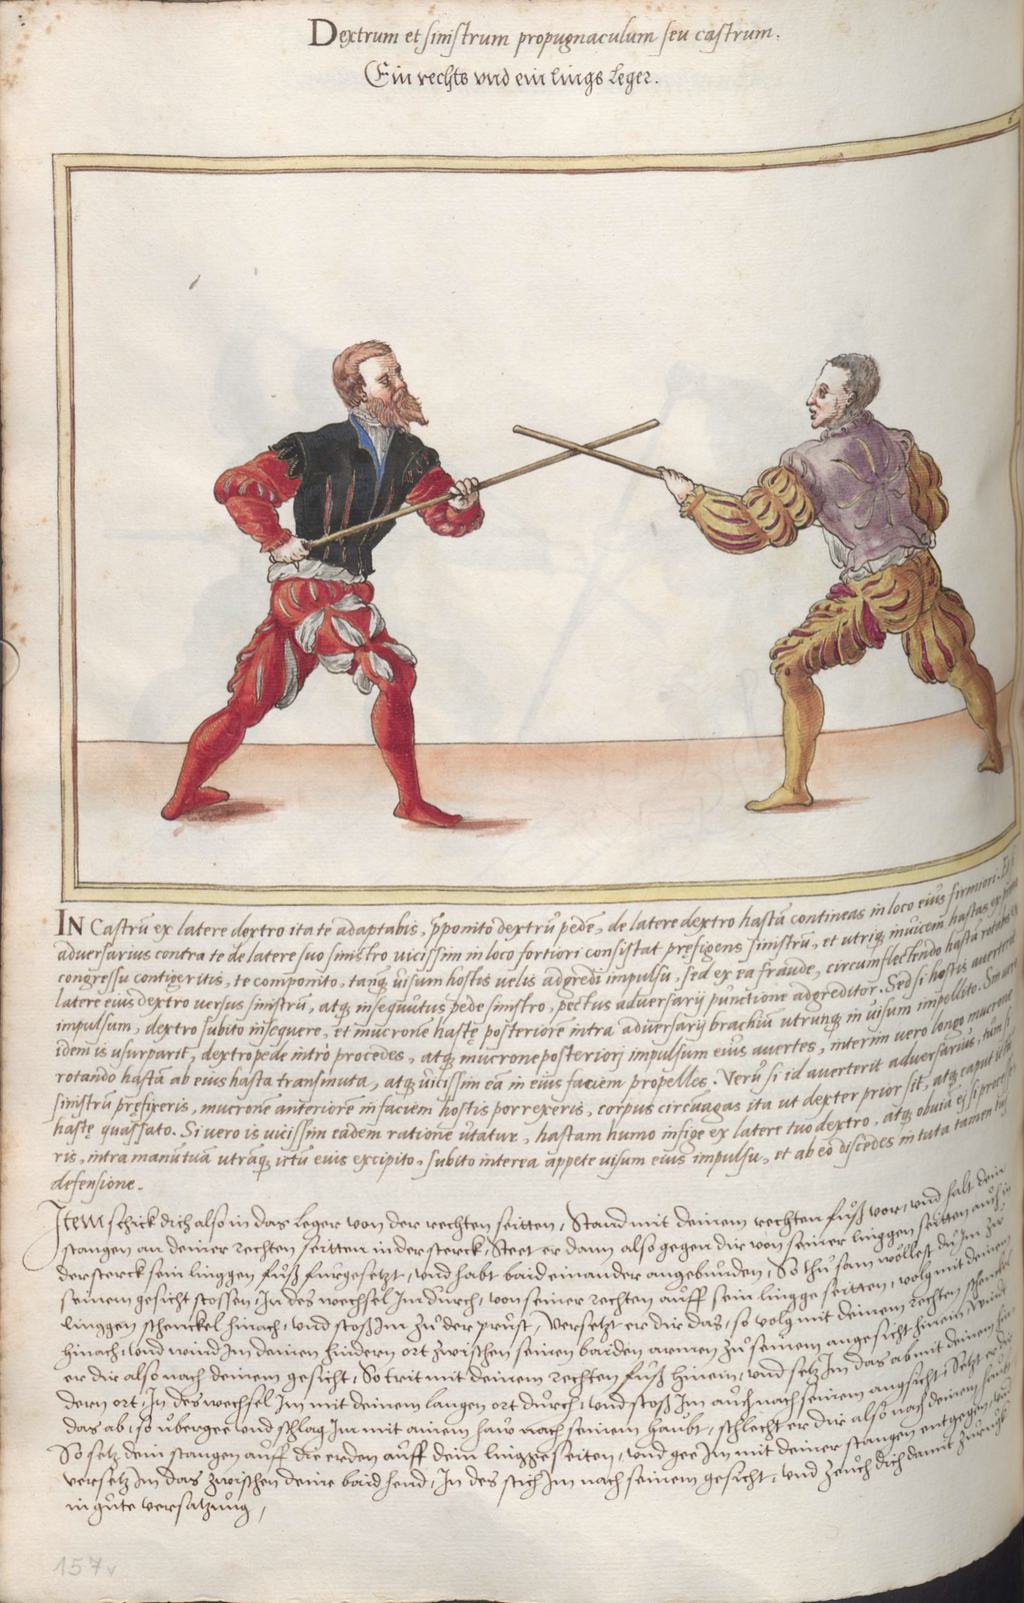 Dextrum et sinistrum propugnaculum seu castrum.
Ein rechts vnd ein lings Leger.
6
IN Castrũ ex latere dextro ita te adaptabis, p̄ponito dextrũ pedẽ, de latere dextro hastã contineas in loco eius firmiori.
adversarius contra te de latere suo sinistro vicissim in loco fortiori consistat pręfigens sinistrũ, et utriq̃ invicem hastas
congressu contigeritis, te componito, tanq̃ visum hostis velis adgredi impulsu, sed ex ea fraude, circumflectendo hastã
latere eius dextro versus sinistrũ, atq̃ insequutus pede sinistro, pectus adversarij punctione adgreditor. Sed si hostis averterit
impulsum, dextro subito insequere, et mucrone hastę posteriore intra adversarij brachia utrunq̃ in visum impellito. Sin vero
idem is usurparit, dextro pede intrò procedes, atq̃ mucrone posteriorj impulsum eius avertes, interim vero longo mucrone
rotando hastã ab eius hasta transmuta, atq̃ vicissim eã in eius faciem propelles. Verũ si id averterit adversarius, tum si
sinistrũ pręfixeris, mucronẽ anteriorẽ in faciem hostis porrexeris, corpus circũagas ita ut dexter prior sit, atq̃ caput
hastę quassato. Si vero is vicissim eadem ratione utatur, hastam humo infige ex latere tuo dextro, atq̃ obvia ej si
ris, intra manũ tuã utrãq̃ ictũ eius excipito, subito interea appete visum eius impulsu, et ab eo discedes in tuta tamen
defensione.
Item schick dich also in das Leger von der rechten seitten, Stand mit deinem rechten fuß vor, vnd halt dein
stangen an deiner rechten seitten in der sterck, Steet er dann also gegen dir von seiner linggen seitten auch in
der sterck sein linggen fuß furgesetzt, vnd habt baid einander angebunden, So thů sam wöllest du Im zu
seinem gesicht stossen, In des wechsel Im durch, von seiner rechten auff sein lingge seitten, volg mit deinem
linggen schenckel hinach, vnd stoß Im zů der prust, Versetzt er dir das, so volg mit deinem rechten schenckel
hinach, vnd wind Im deinen hindern ort zwischen seinen baiden armen zů seinem angesicht hinein, Wind
er dir also nach deinem gesicht, So trit mit deinem rechten fuß hinein, vnd setz Im das ab mit deinem hin
dern ort, In des wechsel Im mit deinem langen ort durch, vnd stoß Im auch nach seinem angsicht, Setzt er dir
das ab, so übergee vnd schlag Im mit ainem haw nach seinem haubt, schlecht er dir also nach deinem
So setz dein stangen auff die erden auff dein lingge seiten, vnd gee Im mit deiner stangen entgegen, vnd
versetz Im das zwischen deine baid hend, In des stich Im nach seinem gesicht, vnd zeuch dich damit zurugk
in gute versatzung,
157v